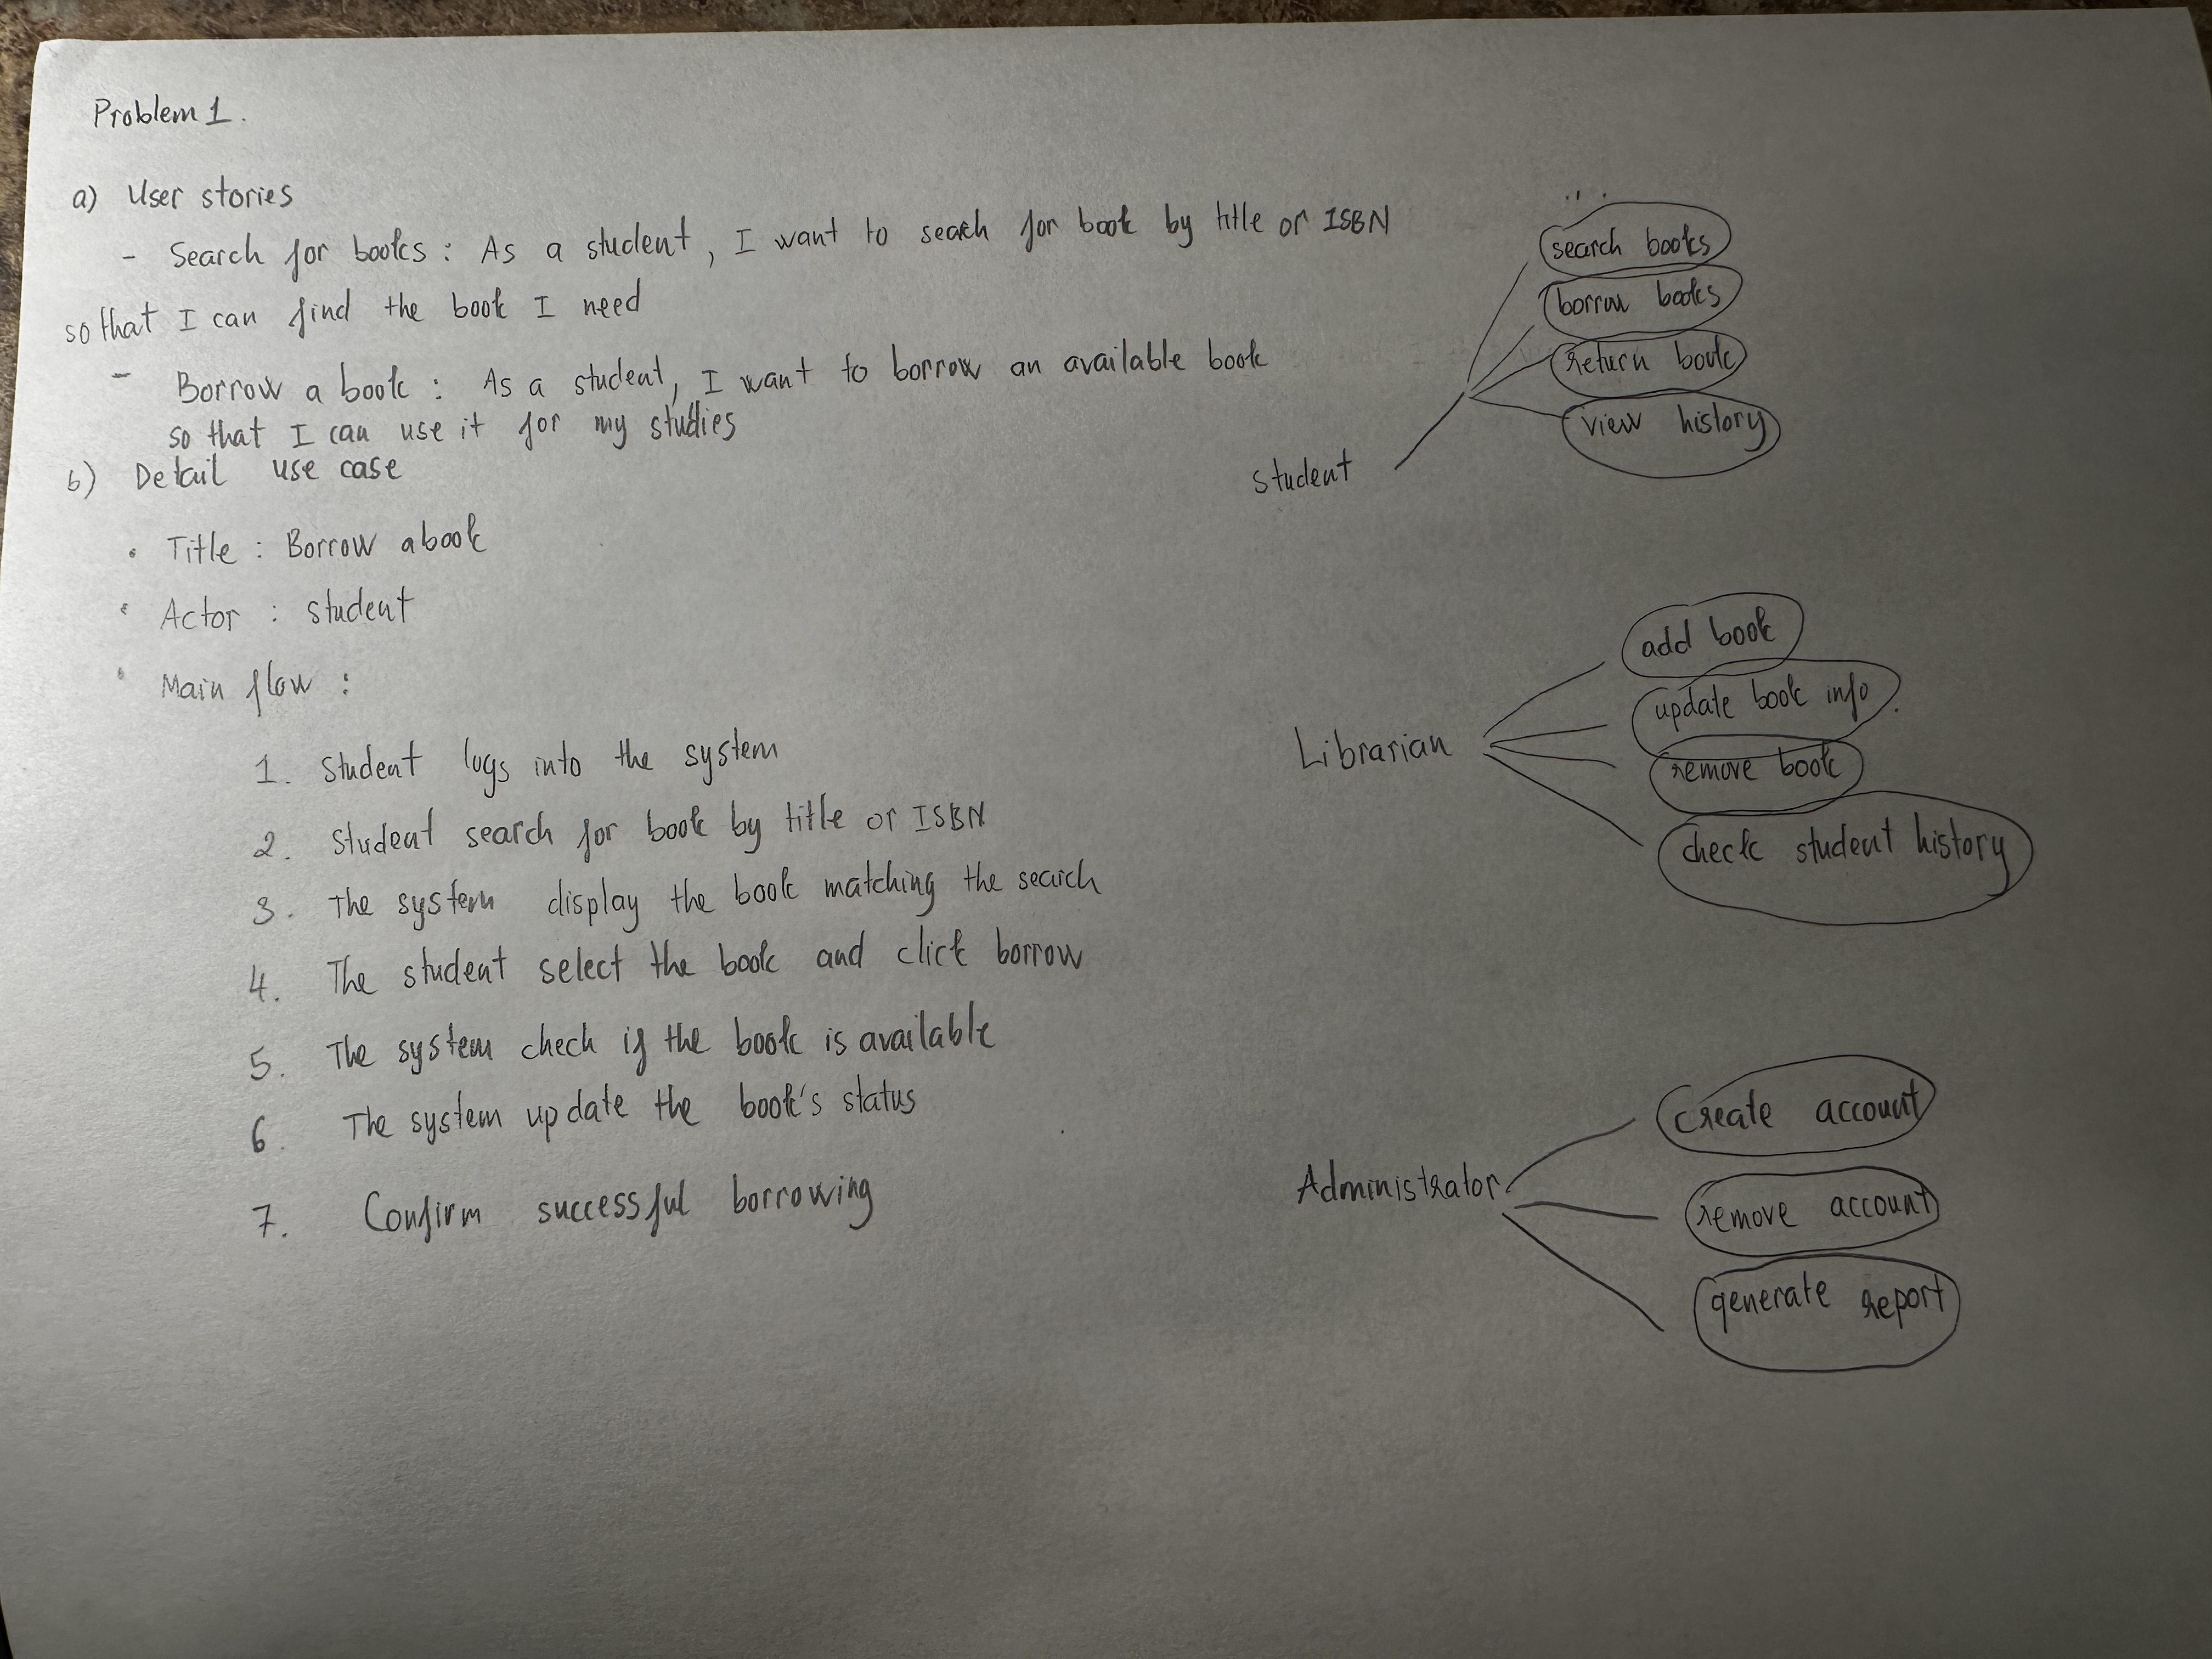 Problem 1.
a) User stories
- Search for books : As a student, I want to search for book by title or ISBN
so that I can find the book I need
- Borrow a book : As a student, I want to borrow an available book
so that I can use it for my studies
b) Detail use case
• Title : Borrow a book
• Actor : student
• Main flow :
1. Student logs into the system
2. Student search for book by title or ISBN
3. The system display the book matching the search
4. The student select the book and click borrow
5. The system check if the book is available
6. The system update the book's status
7. Confirm successful borrowing
Student
search books
borrow books
return book
view history
Librarian
add book
update book info
remove book
check student history
Administrator
create account
remove account
generate report